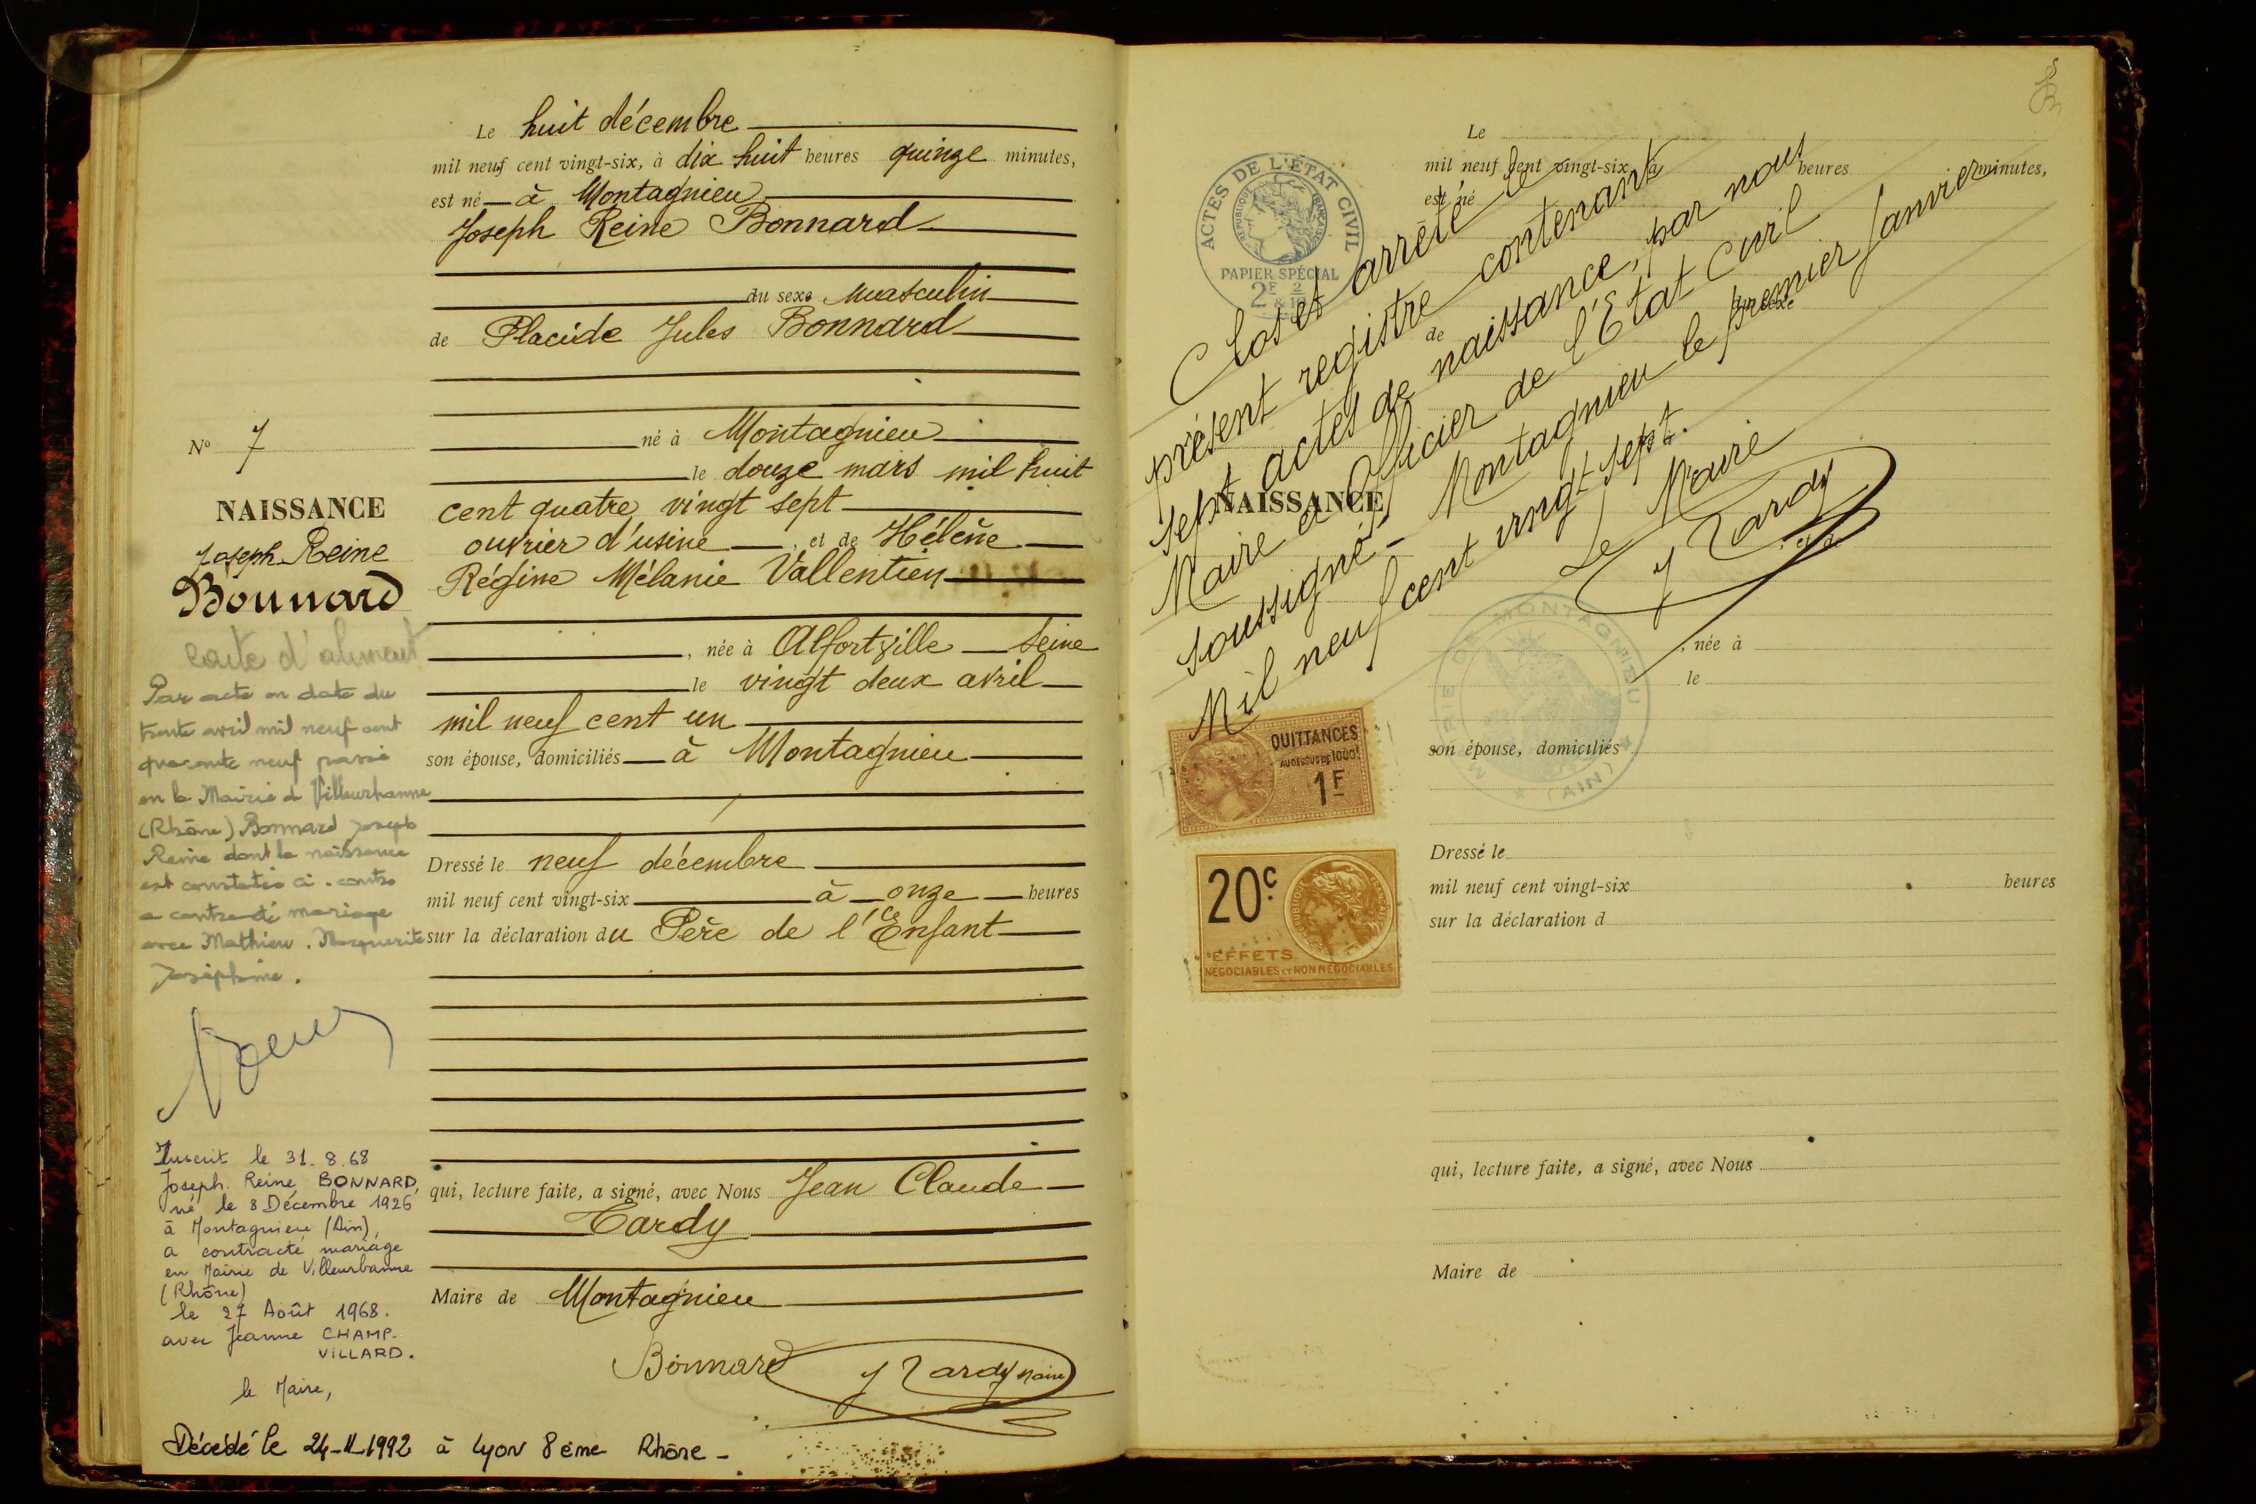 Le huit décembre
mil neuf cent vingt-six, à dix huit heures quinze minutes,
est né à Montagnieu
Joseph Reine Bonnard
du sexe masculin
de Placide Jules Bonnard
né à Montagnieu
le douze mars mil huit
cent quatre vingt sept
ouvrier d'usine, et de Hélène
Régine Mélanie Vallentien
, née à Alfortville Seine
le vingt deux avril
mil neuf cent un
son épouse, domiciliés à Montagnieu
Dressé le neuf décembre
mil neuf cent vingt-six à onze heures
sur la déclaration du Père de l'Enfant
qui, lecture faite, a signé, avec Nous Jean Claude
Tardy
Maire de Montagnieu
Bonnard J Tardy maire
No 7
NAISSANCE
Joseph Reine
Bonnard
carte d'aliment
Par acte en date du
trente avril mil neuf cent
quarante neuf passé
en la Mairie de Villeurbanne
(Rhône) Bonnard Joseph
Reine dont la naissance
est constatée ci-contre
a contracté mariage
avec Mathieu. Marguerite
Joséphine.
Inscrit le 31.8.68
Joseph Reine BONNARD,
né le 8 Décembre 1926
à Montagnieu (Ain),
a contracté mariage
en Mairie de Villeurbanne
(Rhône)
le 27 Août 1968.
avec Jeanne CHAMP-
VILLARD.
le Maire,
Décédé le 24-11-1992 à Lyon 8ème Rhône -
ACTES DE L'ÉTAT CIVIL
RÉPUBLIQUE FRANÇAISE
PAPIER SPÉCIAL
Le
mil neuf cent vingt-six, à heures minutes,
est né
du sexe
de
NAISSANCE
Clos et arrêté le
présent registre contenant
sept actes de naissance, par nous
Maire et Officier de l'Etat Civil
soussigné - Montagnieu le premier Janvier
Mil neuf cent vingt sept.
Le Maire
J Tardy
MAIRIE DE MONTAGNIEU
(AIN)
, née à
le
son épouse, domiciliés
QUITTANCES
AU DESSUS DE 1000f
1F
20c
EFFETS
NÉGOCIABLES ET NON NÉGOCIABLES
Dressé le
mil neuf cent vingt-six heures
sur la déclaration d
qui, lecture faite, a signé, avec Nous
Maire de